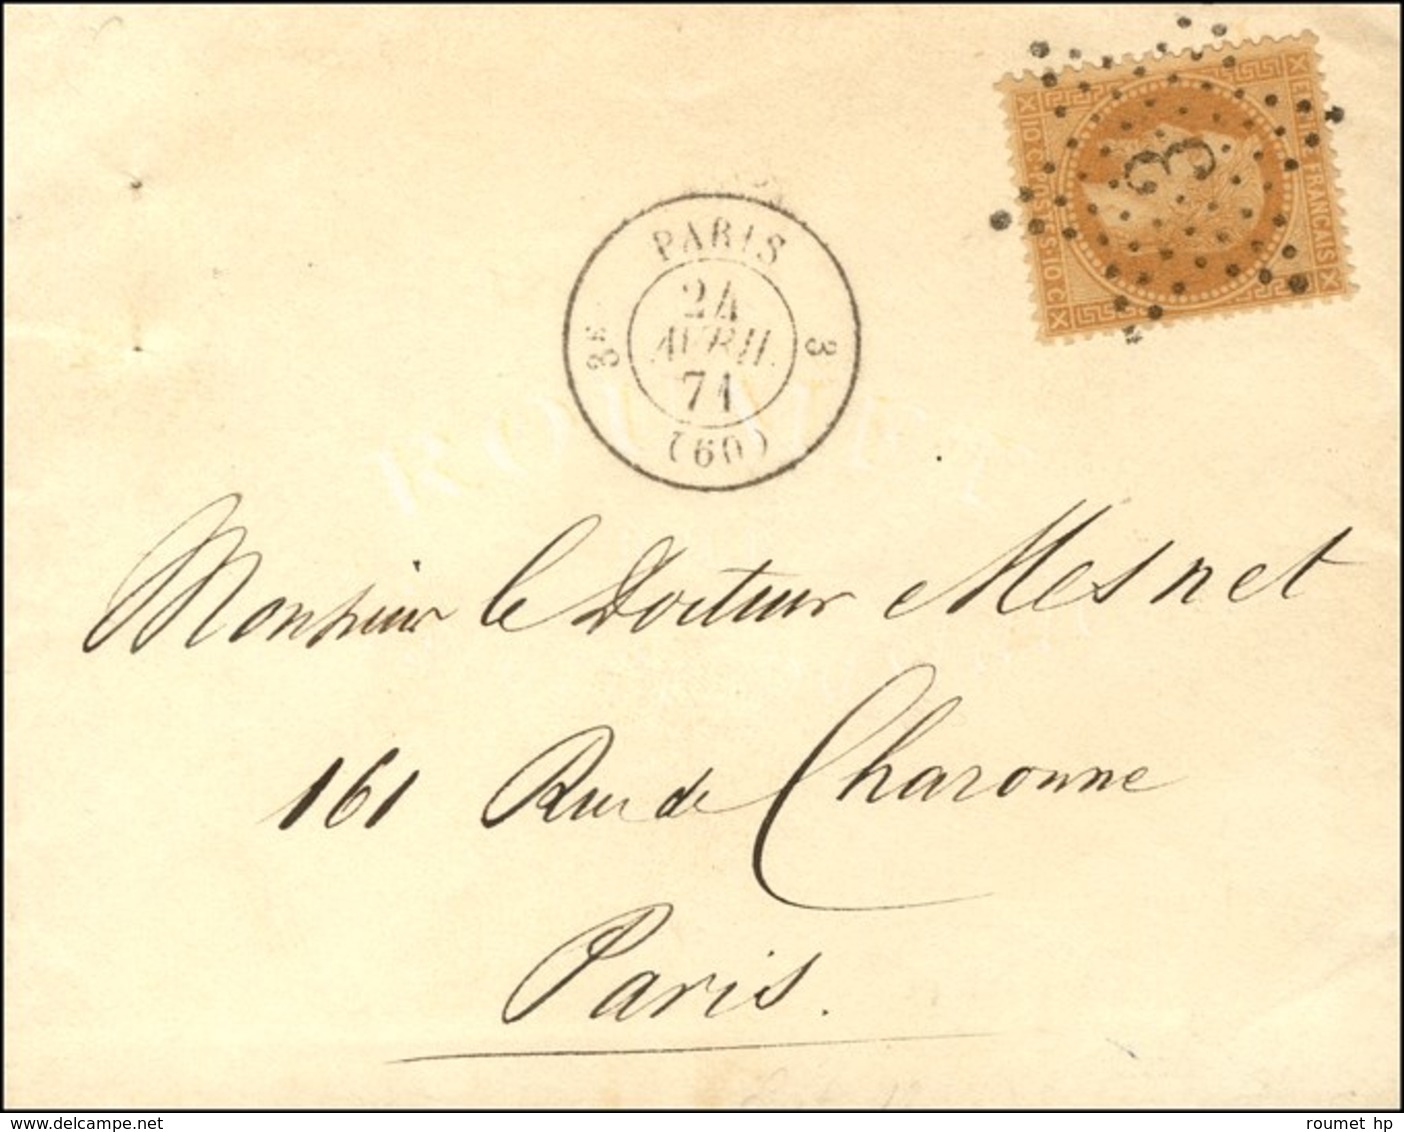 EMPIRE FRANÇAIS
10 C. POSTES 10 C.
3
PARIS
3E 3
24
AVRIL
71
(60)
ROUMET
Monsieur le Docteur Mesnet
161 Rue de Charonne
Paris.
www.delcampe.net
roumet hp